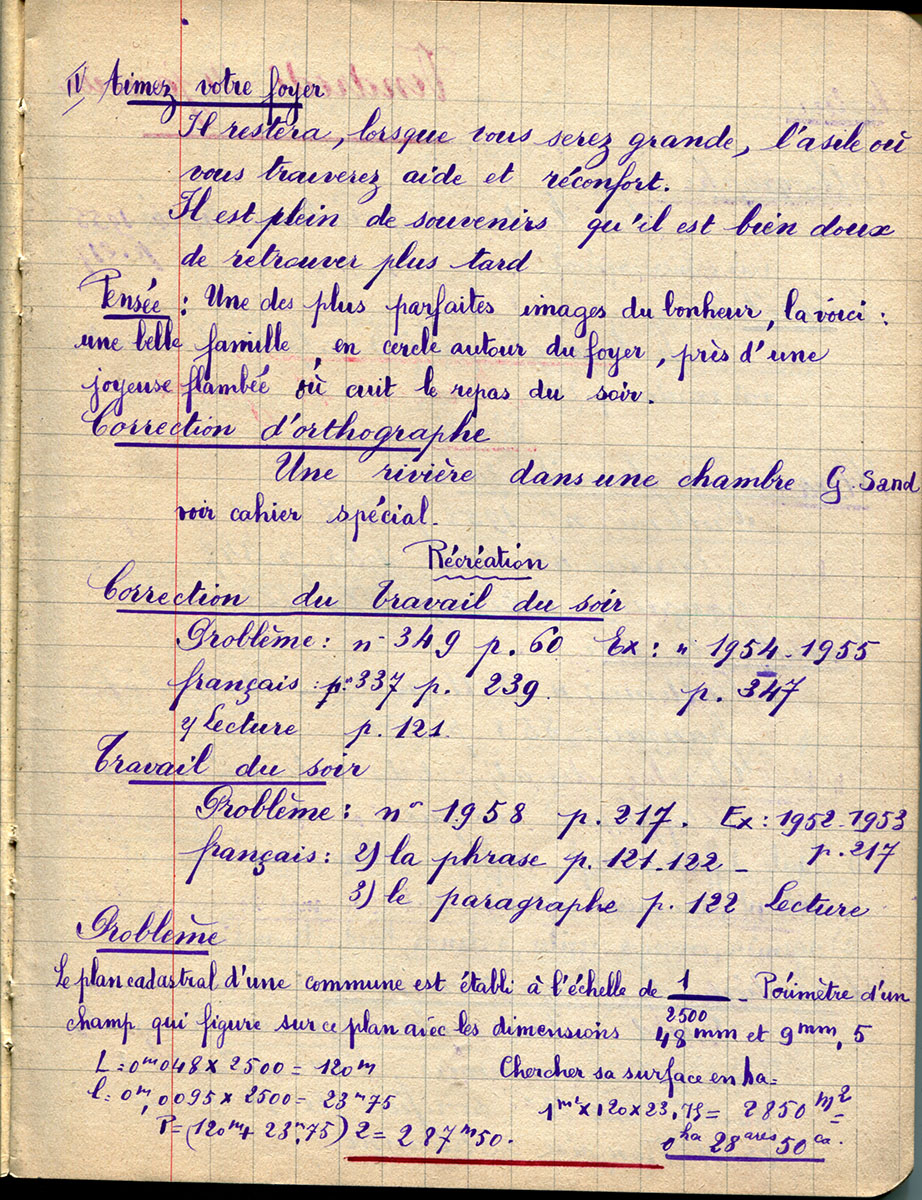 IV Aimez votre foyer
Il restera, lorsque vous serez grande, l'asile où
vous trouverez aide et réconfort.
Il est plein de souvenirs qu'il est bien doux
de retrouver plus tard
Pensée : Une des plus parfaites images du bonheur, la voici :
une belle famille, en cercle autour du foyer, près d'une
joyeuse flambée où cuit le repas du soir.
Correction d'orthographe
Une rivière dans une chambre G. Sand
voir cahier spécial.
Récréation
Correction du travail du soir
Problème : n° 349 p. 60 Ex : n 1954-1955
français : n° 337 p. 239 p. 347
Lecture p. 121.
Travail du soir
Problème : n° 1958 p. 217. Ex : 1952-1953
p. 217
français : 2) la phrase p. 121-122 -
3) le paragraphe p. 122 Lecture
Problème
Le plan cadastral d'une commune est établi à l'échelle de 1/2500 - Périmètre d'un
champ qui figure sur ce plan avec les dimensions 48 mm et 9 mm, 5
L : 0m048 x 2500 = 120m Chercher sa surface en ha =
l : 0m,0095 x 2500 = 23m75 1m² x 120 x 23,75 = 2850 m² =
P = (120m + 23m,75) 2 = 287m50. 0 ha 28 ares 50 ca.